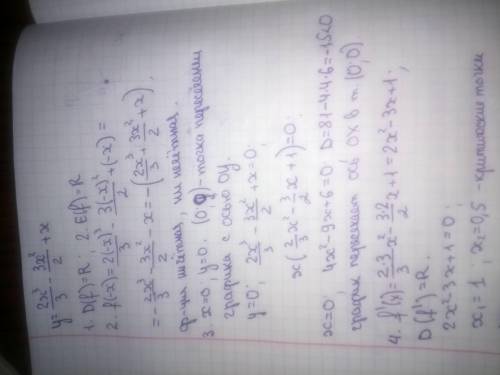 y = 2x³/3 - 3x²/2 + x
1. D(f)=R; 2. E(f)=R
2. f(-x) = 2(-x)³/3 - 3(-x)²/2 + (-x) =
= -2x³/3 - 3x²/2 - x = -(2x³/3 + 3x²/2 + x),
ф-ция ни чётная, ни нечётная.
3. x=0, y=0. (0;0) - точка пересечения
графика с осью оу.
y=0; 2x³/3 - 3x²/2 + x = 0;
x(2/3x² - 3/2x + 1) = 0;
x=0; 4x²-9x+6=0; D=81-4·4·6=-15<0
график пересекает ось ОХ в т. (0;0)
4. f'(x) = 2·3/3x² - 3·2/2x + 1 = 2x² - 3x + 1;
D(f')=R.
2x²-3x+1=0;
x₁=1, x₂=0,5 - критические точки